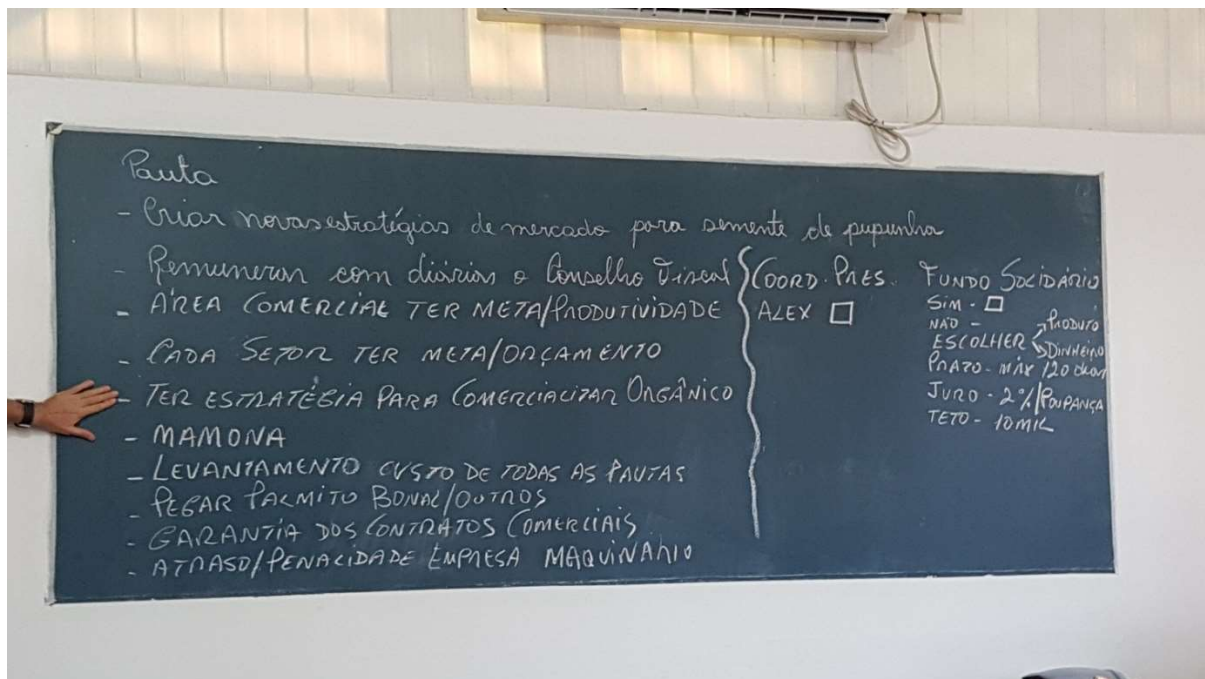 Pauta
- Criar novas estratégias de mercado para semente de pupunha
- Remunerar com diárias o Conselho Fiscal
- ÁREA COMERCIAL TER META/PRODUTIVIDADE
- CADA SETOR TER META/ORÇAMENTO
- TER ESTRATÉGIA PARA COMERCIALIZAR ORGÂNICO
- MAMONA
- LEVANTAMENTO CUSTO DE TODAS AS PAUTAS
- PEGAR PALMITO BONAL/OUTROS
- GARANTIA DOS CONTRATOS COMERCIAIS
- ATRASO/PENALIDADE EMPRESA MAQUINÁRIO
COORD. PRES.
ALEX
FUNDO SOLIDÁRIO
SIM -
NÃO -
ESCOLHER PRODUTO
DINHEIRO
PRAZO - MÁX 120 dias
JURO - 2%/POUPANÇA
TETO - 10 MIL